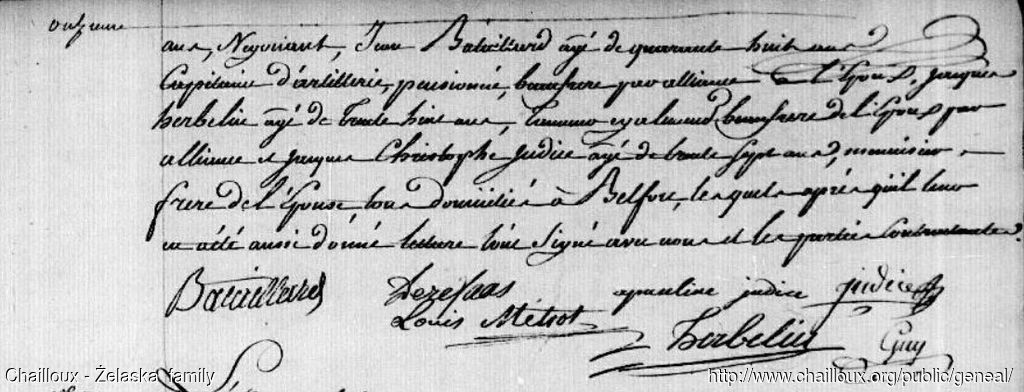 ans, Negociant, Jean Bataillard agé de quarante huit ans
Capitaine d'artillerie, pensionné, beaufrere par alliance de l'Epoux, Jacques
herbelin agé de trente huit ans, egalement beaufrere de l'Epoux par
alliance et Jacques Christophe Judice agé de trente sept ans, menuisier
frere de l'Epouse tous domiciliés à Belfort, lesquels après qu'il leur
en a été aussi donné lecture l'ont signé avec nous et les parties Contractantes.
Bataillard
Dezesaas
apauline judice
judice
Louis Métrot
herbelin
Guy
Chailloux - Żelaska family
http://www.chailloux.org/public/geneal/